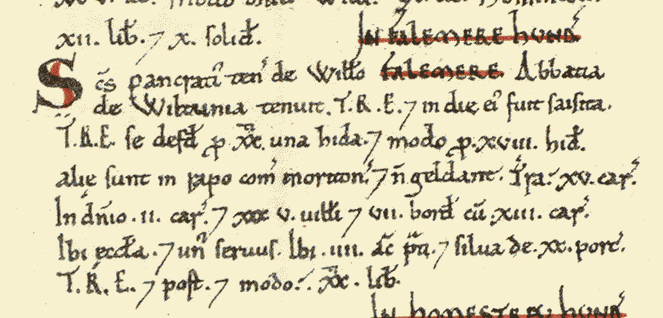 xii. liƀ. 7 x. soliđ. IN FALEMERE HUND'
Sc̄s pancrati' ten' de Willo FALEMERE. Abbatia
de Wiltunia tenuit. T.R.E. 7 in die ei' fuit saisita.
T.R.E. se defđ ꝑ xx. una hida. 7 modo ꝑ. xviii. hiđ.
aliæ sunt in rapo com' moriton'. 7 n̄ geldant. T'ra. xv. car'.
In dn̄io. ii. car'. 7 xxx v. uilłi 7 vii. borđ cū. xiii. car'.
Ibi ecc̄la. 7 un' seruus. Ibi. iiii. ac̄ p̄ti. 7 silua de. xx. porc'.
T.R.E. 7 post. 7 modo. xx. liƀ.
IN HOMESTREU HUND'